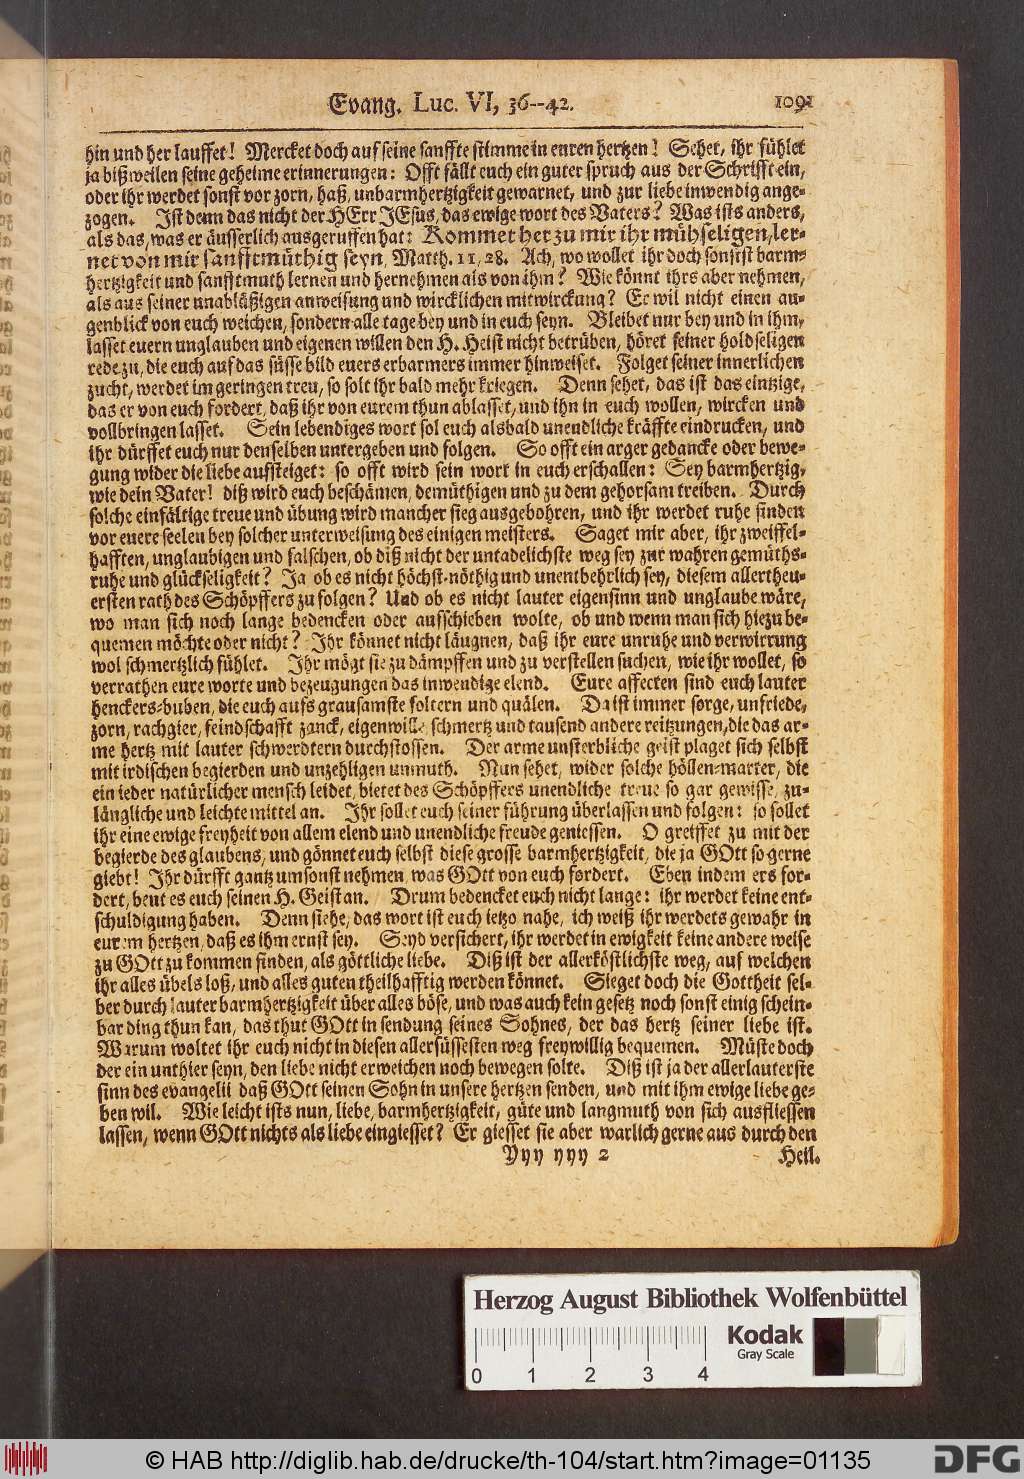 Evang. Luc. VI, 36--42. 1091
hin und her lauffet! Mercket doch auf seine sanffte stimme in euren hertzen! Sehet, ihr fühlet
ja bißweilen seine geheime erinnerungen: Offt fällt euch ein guter spruch aus der Schrifft ein,
oder ihr werdet sonst vor zorn, haß, unbarmhertzigkeit gewarnet, und zur liebe inwendig ange-
zogen. Ist denn das nicht der HErr JEsus, das ewige wort des Vaters? Was ists anders,
als das, was er äusserlich ausgeruffen hat: Kommet her zu mir ihr mühseligen, ler-
net von mir sanfftmüthig seyn, Matth. 11, 28. Ach, wo wollet ihr doch sonsst barm-
hertzigkeit und sanfftmuth lernen und hernehmen als von ihm? Wie könnt ihrs aber nehmen,
als aus seiner unabläßigen anweisung und wircklichen mitwirckung? Er wil nicht einen au-
genblick von euch weichen, sondern alle tage bey und in euch seyn. Bleibet nur bey und in ihm,
lasset euern unglauben und eigenen willen den H. Heist nicht betrüben, höret seiner holdseligen
rede zu, die euch auf das süsse bild euers erbarmers immer hinweiset. Folget seiner innerlichen
zucht, werdet im geringen treu, so solt ihr bald mehr kriegen. Denn sehet, das ist das eintzige,
das er von euch fordert, daß ihr von eurem thun ablasset, und ihn in euch wollen, wircken und
vollbringen lasset. Sein lebendiges wort sol euch alsbald unendliche kräffte eindrucken, und
ihr dürffet euch nur denselben untergeben und folgen. So offt ein arger gedancke oder bewe-
gung wider die liebe aufsteiget: so offt wird sein wort in euch erschallen: Sey barmhertzig,
wie dein Vater! diß wird euch beschämen, demüthigen und zu dem gehorsam treiben. Durch
solche einfältige treue und übung wird mancher sieg ausgebohren, und ihr werdet ruhe finden
vor euere seelen bey solcher unterweisung des einigen meisters. Saget mir aber, ihr zweiffel-
hafften, unglaubigen und falschen, ob diß nicht der untadelichste weg sey zur wahren gemüths-
ruhe und glückseligkeit? Ja ob es nicht höchst-nöthig und unentbehrlich sey, diesem allertheu-
ersten rath des Schöpffers zu folgen? Und ob es nicht lauter eigensinn und unglaube wäre,
wo man sich noch lange bedencken oder aufschieben wolte, ob und wenn man sich hiezu be-
quemen möchte oder nicht? Ihr könnet nicht läugnen, daß ihr eure unruhe und verwirrung
wol schmertzlich fühlet. Ihr mögt sie zu dämpffen und zu verstellen suchen, wie ihr wollet, so
verrathen eure worte und bezeugungen das inwendige elend. Eure affecten sind euch lauter
henckers-buben, die euch aufs grausamste foltern und quälen. Da ist immer sorge, unfriede,
zorn, rachgier, feindschafft zanck, eigenwille, schmertz und tausend andere reitzungen, die das ar-
me hertz mit lauter schwerdtern durchstossen. Der arme unsterbliche geist plaget sich selbst
mit irdischen begierden und unzehligen unmuth. Nun sehet, wider solche höllen-marter, die
ein ieder natürlicher mensch leidet, bietet des Schöpffers unendliche treue so gar gewisse, zu-
längliche und leichte mittel an. Ihr sollet euch seiner führung überlassen und folgen: so sollet
ihr eine ewige freyheit von allem elend und unendliche freude geniessen. O greiffet zu mit der
begierde des glaubens, und gönnet euch selbst diese grosse barmhertzigkeit, die ja GOtt so gerne
giebt! Ihr dürfft gantz umsonst nehmen, was GOtt von euch fordert. Eben indem ers for-
dert, beut es euch seinen H. Geist an. Drum bedencket euch nicht lange: ihr werdet keine ent-
schuldigung haben. Denn siehe, das wort ist euch ietzo nahe, ich weiß ihr werdets gewahr in
eurem hertzen, daß es ihm ernst sey. Seyd versichert, ihr werdet in ewigkeit keine andere weise
zu GOtt zu kommen finden, als göttliche liebe. Diß ist der allerköstlichste weg, auf welchen
ihr alles übels loß, und alles guten theilhafftig werden könnet. Sieget doch die Gottheit sel-
ber durch lauter barmhertzigkeit über alles böse, und was auch kein gesetz noch sonst einig schein-
bar ding thun kan, das thut GOtt in sendung seines Sohnes, der das hertz seiner liebe ist.
Warum woltet ihr euch nicht in diesen allersüssesten weg freywillig bequemen. Müste doch
der ein unthier seyn, den liebe nicht erweichen noch bewegen solte. Diß ist ja der allerlauterste
sinn des evangelii daß GOtt seinen Sohn in unsere hertzen senden, und mit ihm ewige liebe ge-
ben wil. Wie leicht ists nun, liebe, barmhertzigkeit, güte und langmuth von sich ausfliessen
lassen, wenn GOtt nichts als liebe eingiesset? Er giesset sie aber warlich gerne aus durch den
Yyy yyy 2 Heil.
Herzog August Bibliothek Wolfenbüttel
Kodak
Gray Scale
0 1 2 3 4
© HAB http://diglib.hab.de/drucke/th-104/start.htm?image=01135
DFG